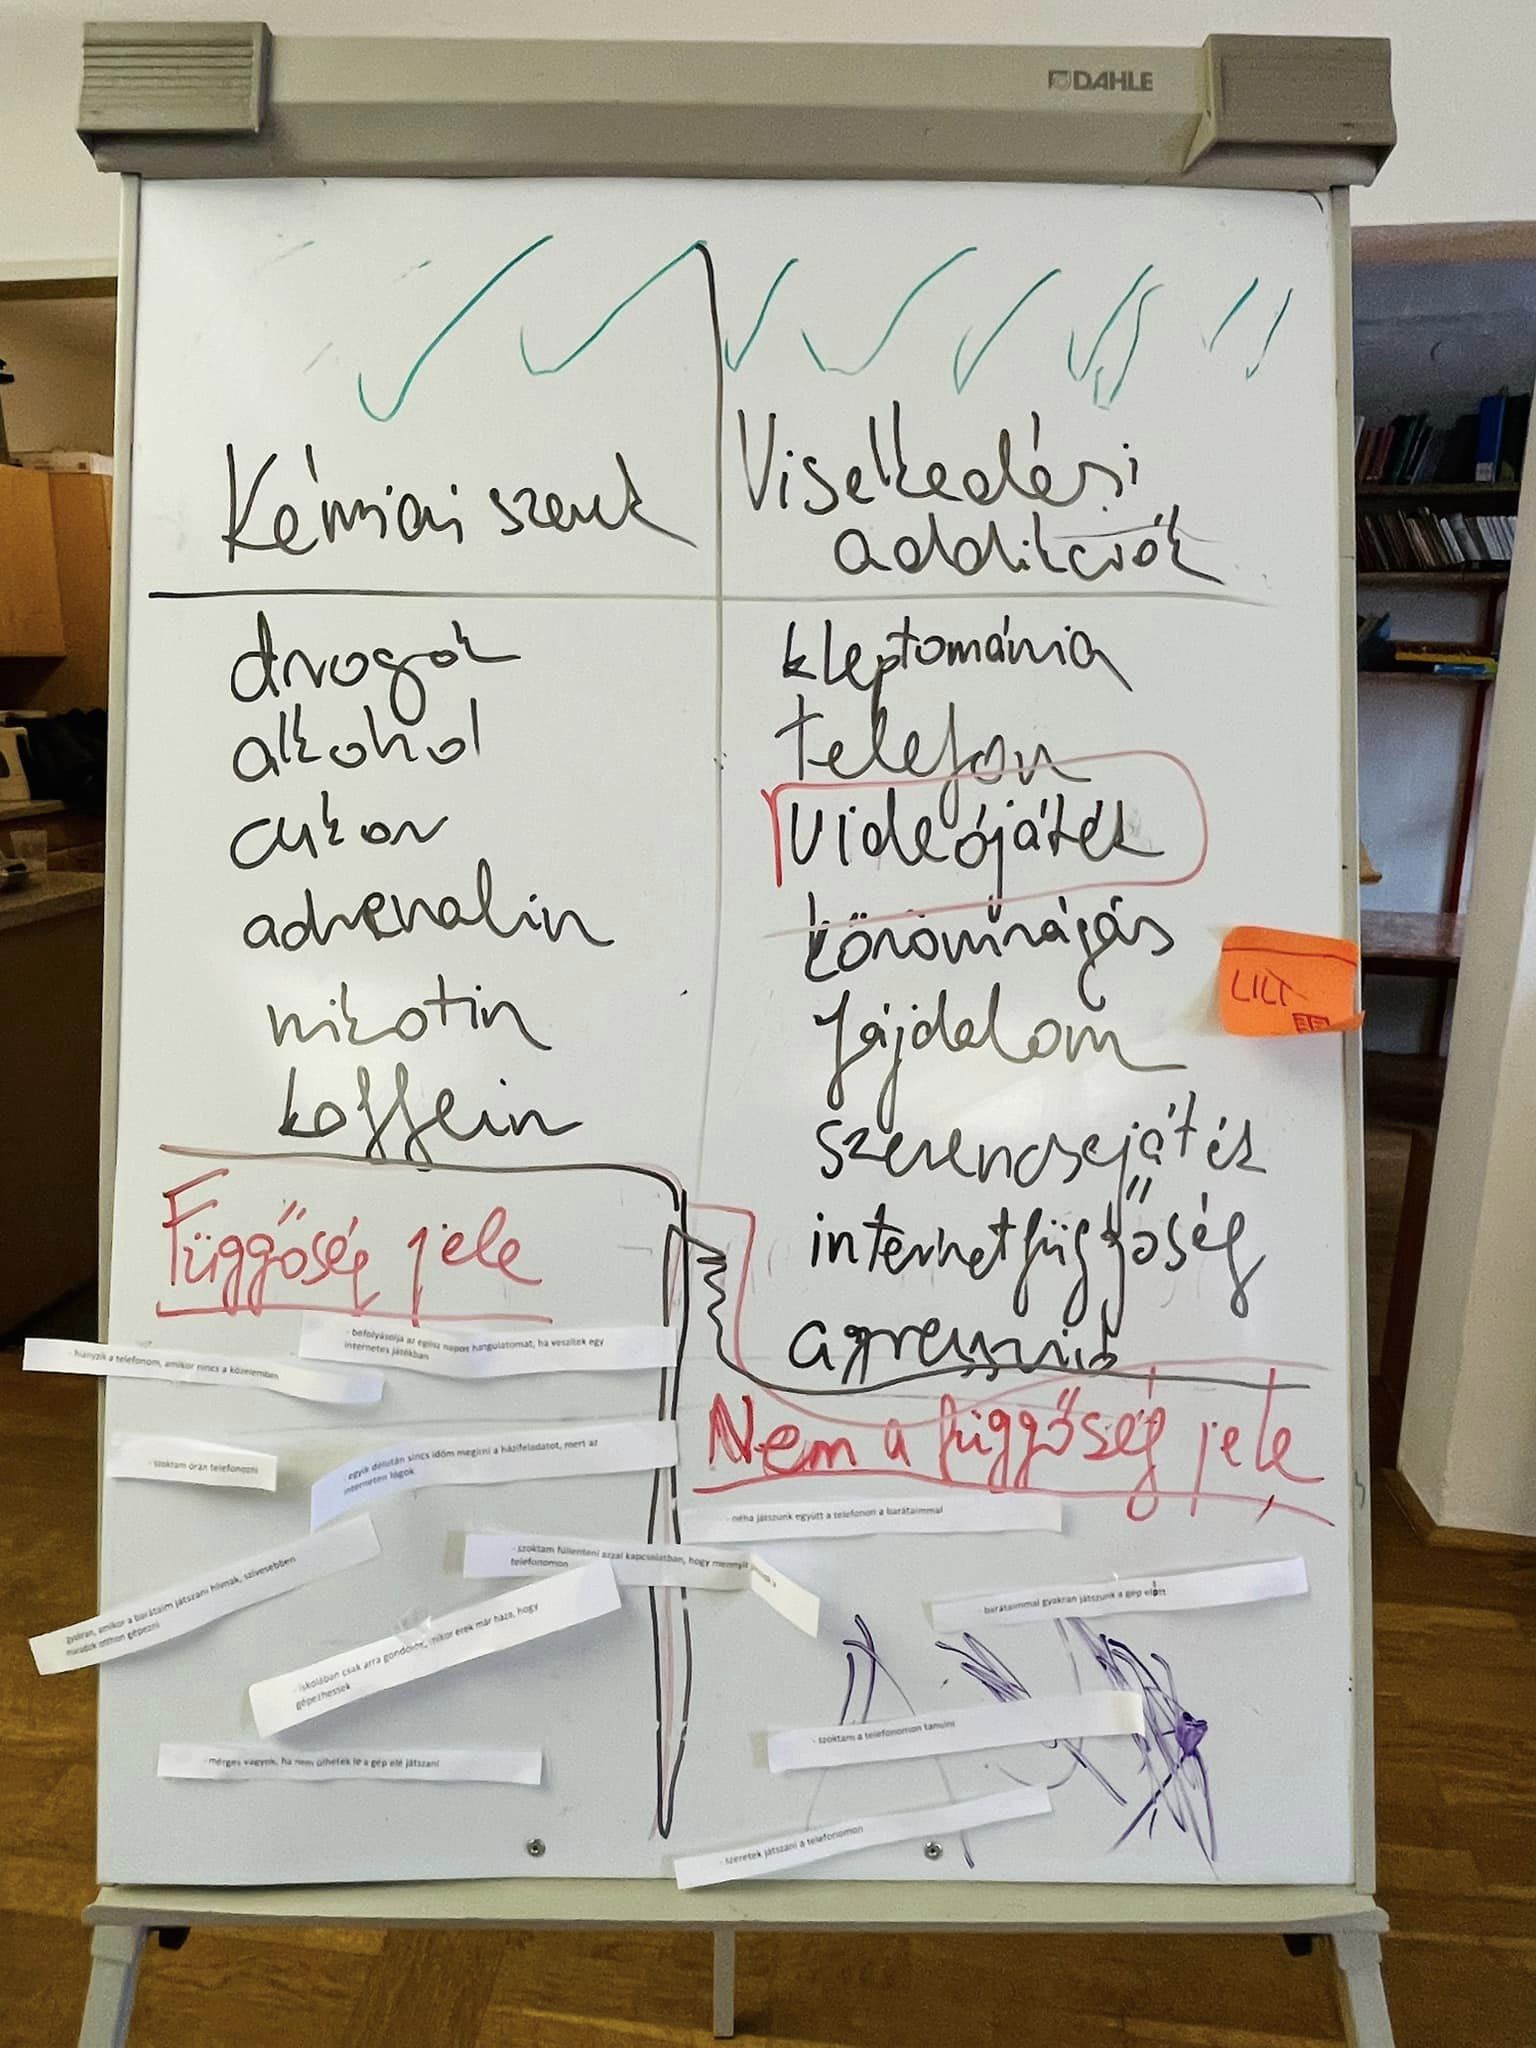 DAHLE
Kémiai szerek
Viselkedési
addikciók
drogok
alkohol
cukor
adrenalin
nikotin
koffein
kleptománia
telefon
Videójáték
körömrágás
fájdalom
szerencsejáték
internetfüggőség
agresszió
LILI
Függőség jele
- hiányzik a telefonom, amikor nincs a közelemben
- befolyásolja az egész napos hangulatomat, ha veszítek egy
internetes játékban
- szoktam órán telefonozni
- egyik délután sincs időm megírni a házifeladatot, mert az
interneten lógok
- szoktam füllenteni azzal kapcsolatban, hogy mennyit
telefonomon
- gyakran, amikor a barátaim játszani hívnak, szívesebben
maradok otthon gépezni
- iskolában csak arra gondolok, mikor érek már haza, hogy
gépezhessek
- mérges vagyok, ha nem ülhetek le a gép elé játszani
Nem a függőség jele
- néha játszunk együtt a telefonon a barátaimmal
- barátaimmal gyakran játszunk a gép előtt
- szoktam a telefonomon tanulni
- szeretek játszani a telefonomon